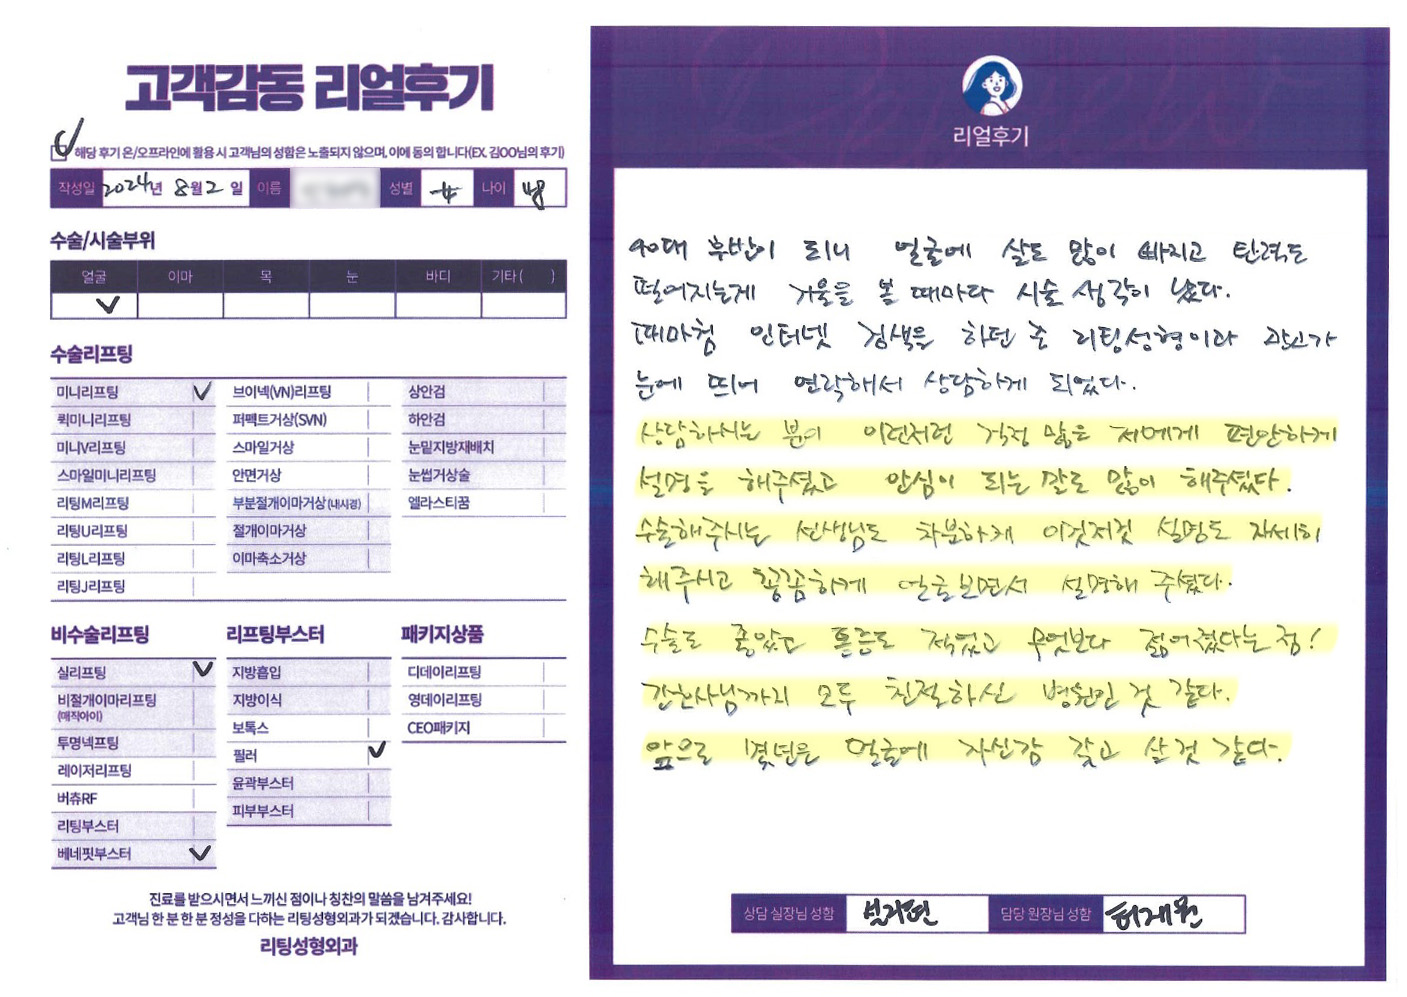 고객감동 리얼후기
해당 후기 온/오프라인에 활용 시 고객님의 성함은 노출되지 않으며, 이에 동의 합니다(EX. 김OO님의 후기)
작성일 2024년 8월 2일 이름 성별 女 나이 48
수술/시술부위
얼굴 이마 목 눈 바디 기타( )
수술리프팅
미니리프팅 브이넥(VN)리프팅 상안검
퀵미니리프팅 퍼펙트거상(SVN) 하안검
미니V리프팅 스마일거상 눈밑지방재배치
스마일미니리프팅 안면거상 눈썹거상술
리팅M리프팅 부분절개이마거상(내시경) 엘라스티꿈
리팅U리프팅 절개이마거상
리팅L리프팅 이마축소거상
리팅J리프팅
비수술리프팅 리프팅부스터 패키지상품
실리프팅 지방흡입 디데이리프팅
비절개이마리프팅 지방이식 영데이리프팅
(매직아이)
투명넥프팅 보톡스 CEO패키지
레이저리프팅 필러
버츄RF 윤곽부스터
리팅부스터 피부부스터
베네핏부스터
진료를 받으시면서 느끼신 점이나 칭찬의 말씀을 남겨주세요!
고객님 한 분 한 분 정성을 다하는 리팅성형외과가 되겠습니다. 감사합니다.
리팅성형외과
리얼후기
40대 후반이 되니 얼굴에 살도 많이 빠지고 탄력도
떨어지는게 거울을 볼 때마다 시술 생각이 났다.
때마침 인터넷 검색을 하던 중 리팅성형이라 광고가
눈에 띄어 연락해서 상담하게 되었다.
상담하시는 분이 이런저런 걱정 많은 저에게 편안하게
설명을 해주셨고 안심이 되는 말로 많이 해주셨다.
수술해주시는 선생님도 차분하게 이것저것 설명도 자세히
해주시고 꼼꼼하게 얼굴보면서 설명해 주셨다.
수술도 좋았고 통증도 적었고 무엇보다 젊어졌다는 점!
간호사님까지 모두 친절하신 병원인 것 같다.
앞으로 몇년은 얼굴에 자신감 갖고 살 것 같다.
상담 실장님 성함 담당 원장님 성함